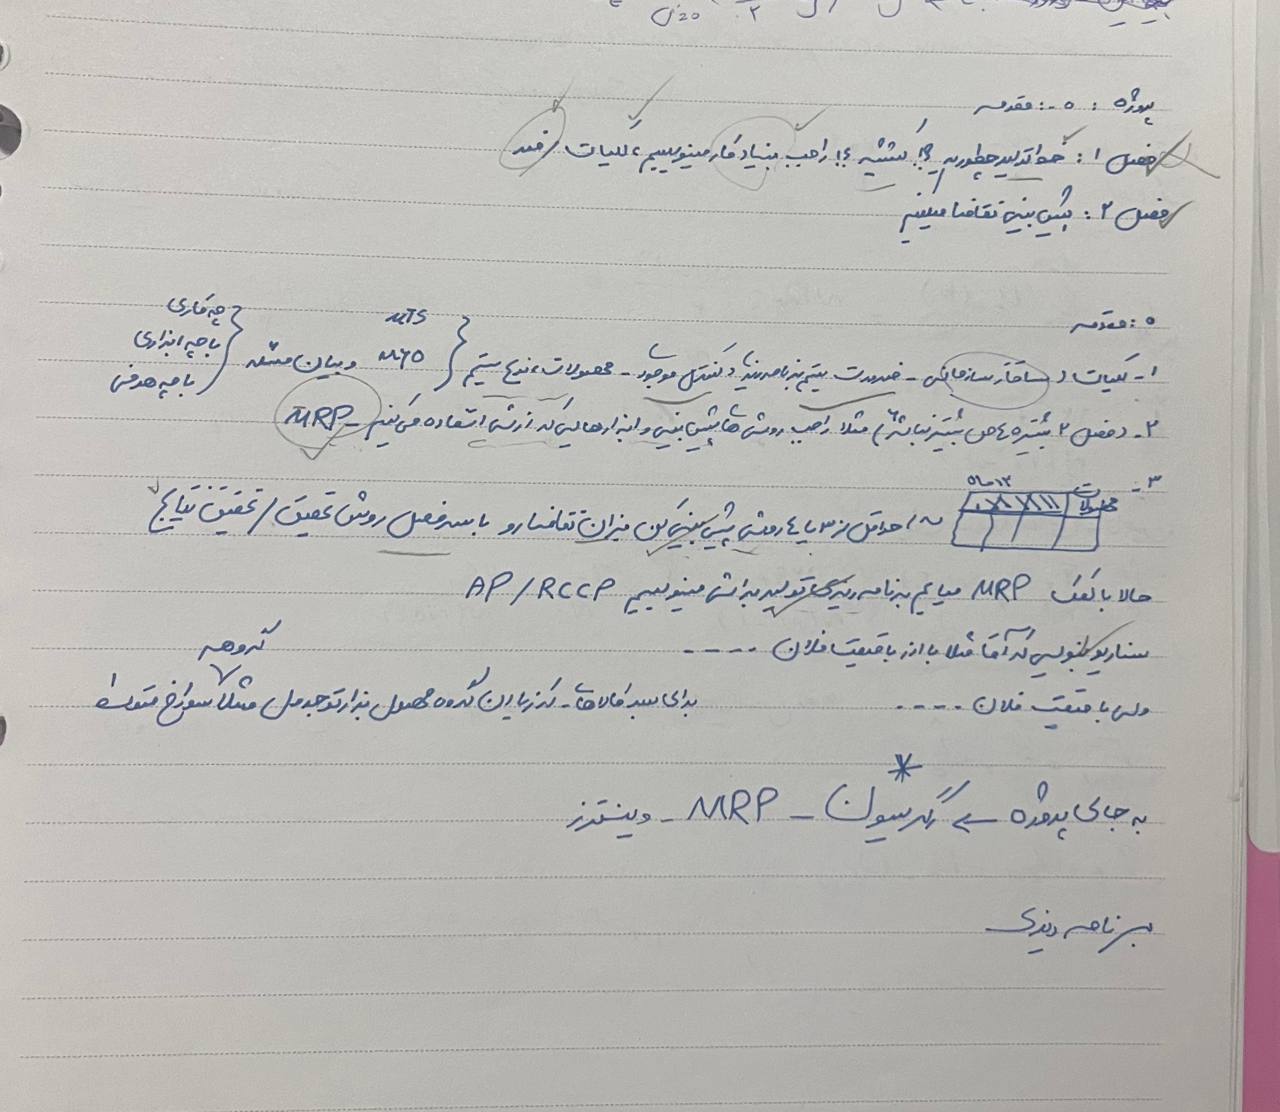 پروژه : ۰-: مقدمه
فصل ۱ : خط تولید چطوریه راجب بنیاد کار مینویسیم ، کلیات
فصل ۲ : پیش بینی تقاضا میکنیم
۰ : مقدمه
۱- کلیات ( ساختار سازمانی - ضرورت سیستم برنامه ریزی و کنترل موجودی - محصولات ، نوع سیستم { MTS MTO و بیان مسئله { چه کاری با چه ابزاری با چه هدفی
۲- فصل ۲ بیشتر نباشد ) مثلا راجب روش های پیش بینی و ابزارهایی که ازش استفاده می کنیم - MRP
۳- محصولات ۱۲ ماه
حداقل از ۳ یا ۴ روش پیش بینی کن میزان تقاضا رو با سرفصل روش تحقیق / تحقیق نتایج
حالا با کمک MRP میایم برنامه ریزی تولید براش مینویسیم AP / RCCP
سناریو بنویس که آقا مثلا با ارز با قیمت فلان -----
ولی با قیمت فلان ----
برای سبد کالاها - که زیر این گروه محصول بذار تو جدول مثلا سوراخ
گروهه
به جای پروژه ← رگرسیون - MRP - وینترز
برنامه ریزی